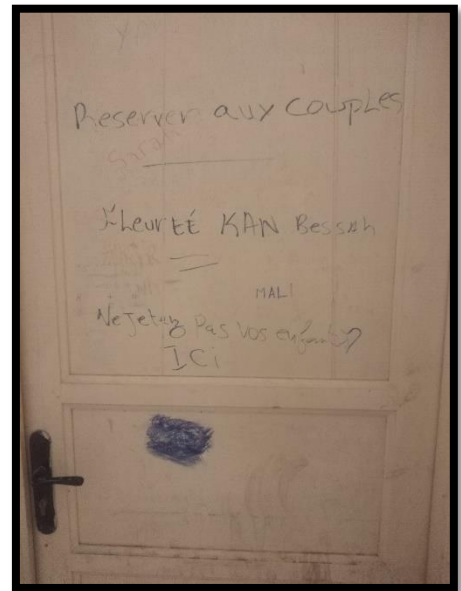 Reserver aux couples
Sarah
Fleurté KAN Bessah
MALI
Ne Jetez Pas vos enfants
ICi